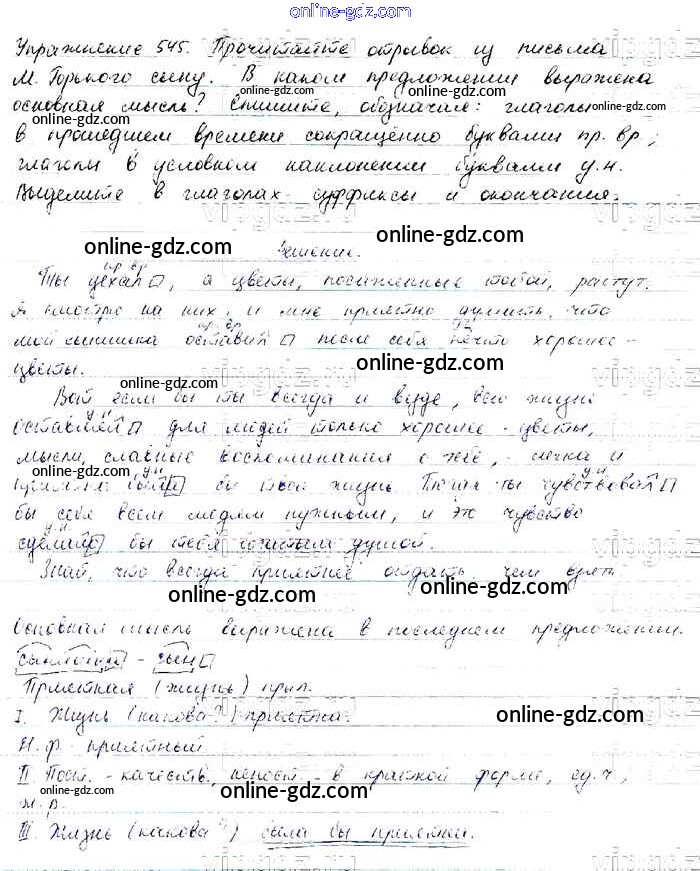 online-gdz.com
Упражнение 545. Прочитайте отрывок из письма
М. Горького сыну. В каком предложении выражена
основная мысль? Спишите, обозначая: глаголы
в прошедшем времени сокращённо буквами пр. вр.;
глаголы в условном наклонении буквами у.н.
Выделите в глаголах суффиксы и окончания.
online-gdz.com
Решение.
пр. вр.
Ты уехал, а цветы, посаженные тобой, растут.
Я смотрю на них, и мне приятно думать, что
пр. вр.
мой сынишка оставил после себя нечто хорошее -
цветы.
online-gdz.com
Вот если бы ты всегда и везде, всю жизнь
у.н
оставлял для людей только хорошее - цветы,
мысли, славные воспоминания о тебе, - легка и
у.н у.н
приятна была бы твоя жизнь. Тогда ты чувствовал
бы себя всем людям нужным, и это чувство
у.н
сделало бы тебя богатым душой.
Знай, что всегда приятнее отдать, чем взять.
online-gdz.com
Основная мысль выражена в последнем предложении.
сынишка - сын
Приятная (жизнь) прил.
I. Жизнь (какова?) приятна.
Н. ф. - приятный
II. Пост. - качеств., непост. - в краткой форме, ед. ч.,
ж. р.
III. Жизнь (какова?) была бы приятна.
online-gdz.com